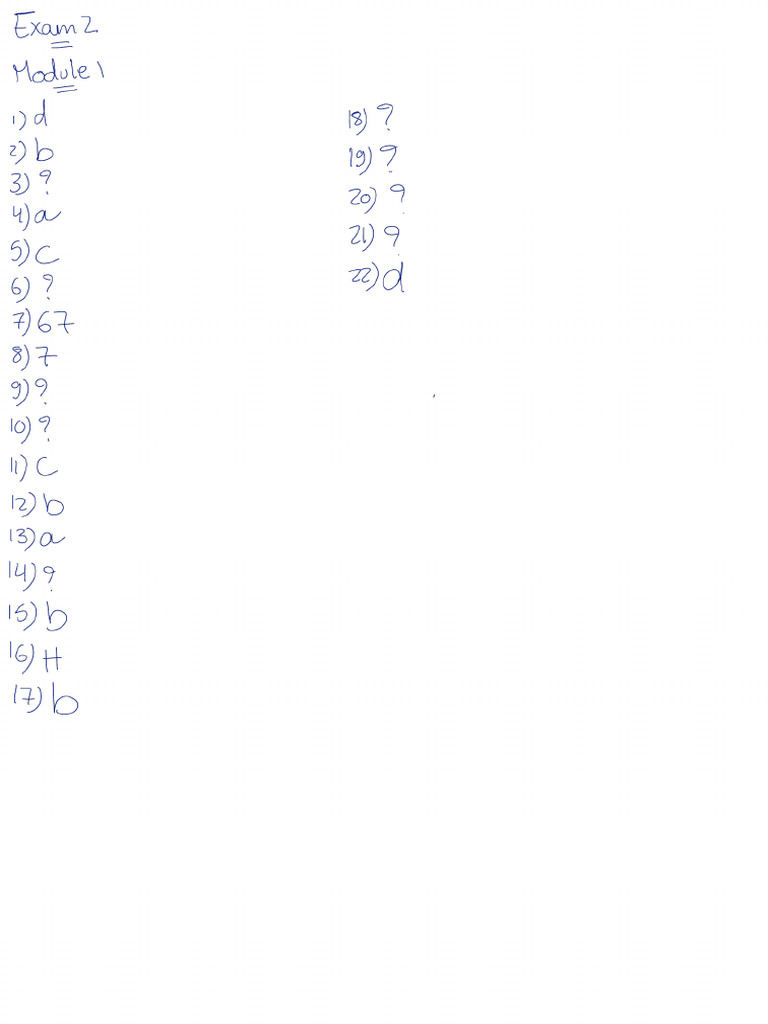 Exam 2
Module 1
1) d
2) b
3) ?
4) a
5) c
6) ?
7) 67
8) 7
9) ?
10) ?
11) c
12) b
13) a
14) ?
15) b
16) H
17) b
18) ?
19) ?
20) ?
21) ?
22) d